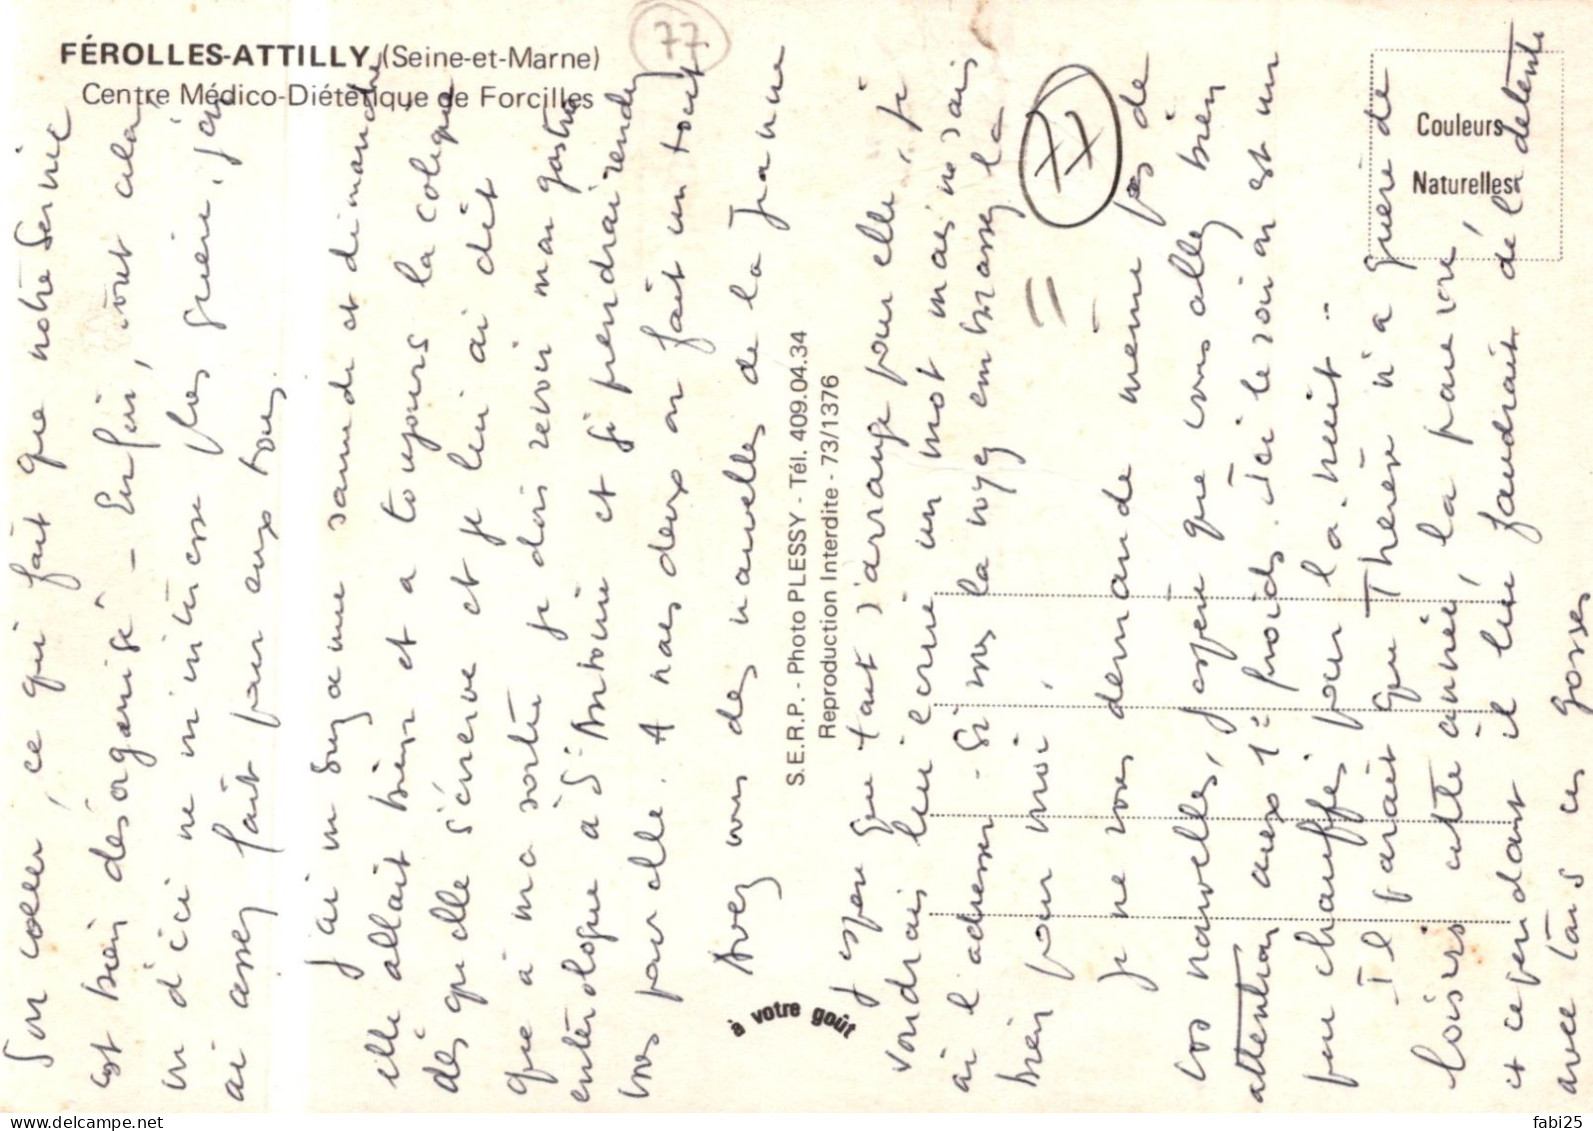 FÉROLLES-ATTILLY (Seine-et-Marne)
Centre Médico-Diététique de Forcilles
77
Couleurs
Naturelles
77
son coeur, ce qui fait que notre Service
est bien désorganisé - Enfin, tout cela
ne m'intéresse plus guère, j'en
ai assez fait pour eux tous.
J'ai vu Suzanne samedi et dimanche
elle allait bien et a toujours la colique
dès qu'elle s'énerve et je lui ai dit
que à ma sortie je dois revoir mon gastro
entérologue à St Antoine et si prendrai rendez
vous pour elle. A nous deux on fait un tout
Avez vous des nouvelles de la Jeanne
S.E.R.P. - Photo PLESSY - Tél. 409.04.34
Reproduction Interdite - 73/1376
à votre goût
J'espère que tout s'arrange pour elle. Je
voudrais lui écrire un mot mais ne sais
ai l'adresse. Si vous la voyez embrassez la
bien pour moi.
Je ne vous demande même pas de
vos nouvelles, j'espère que vous allez bien
attention aux 1e froids. Ici le soir on est un
peu chauffés pour la nuit..
Il parait que Thérèse n'a guère de
loisirs cette année, la pauvre,
et cependant il lui faudrait de la détente
avec tous ces gosses
www.delcampe.net
fabi25